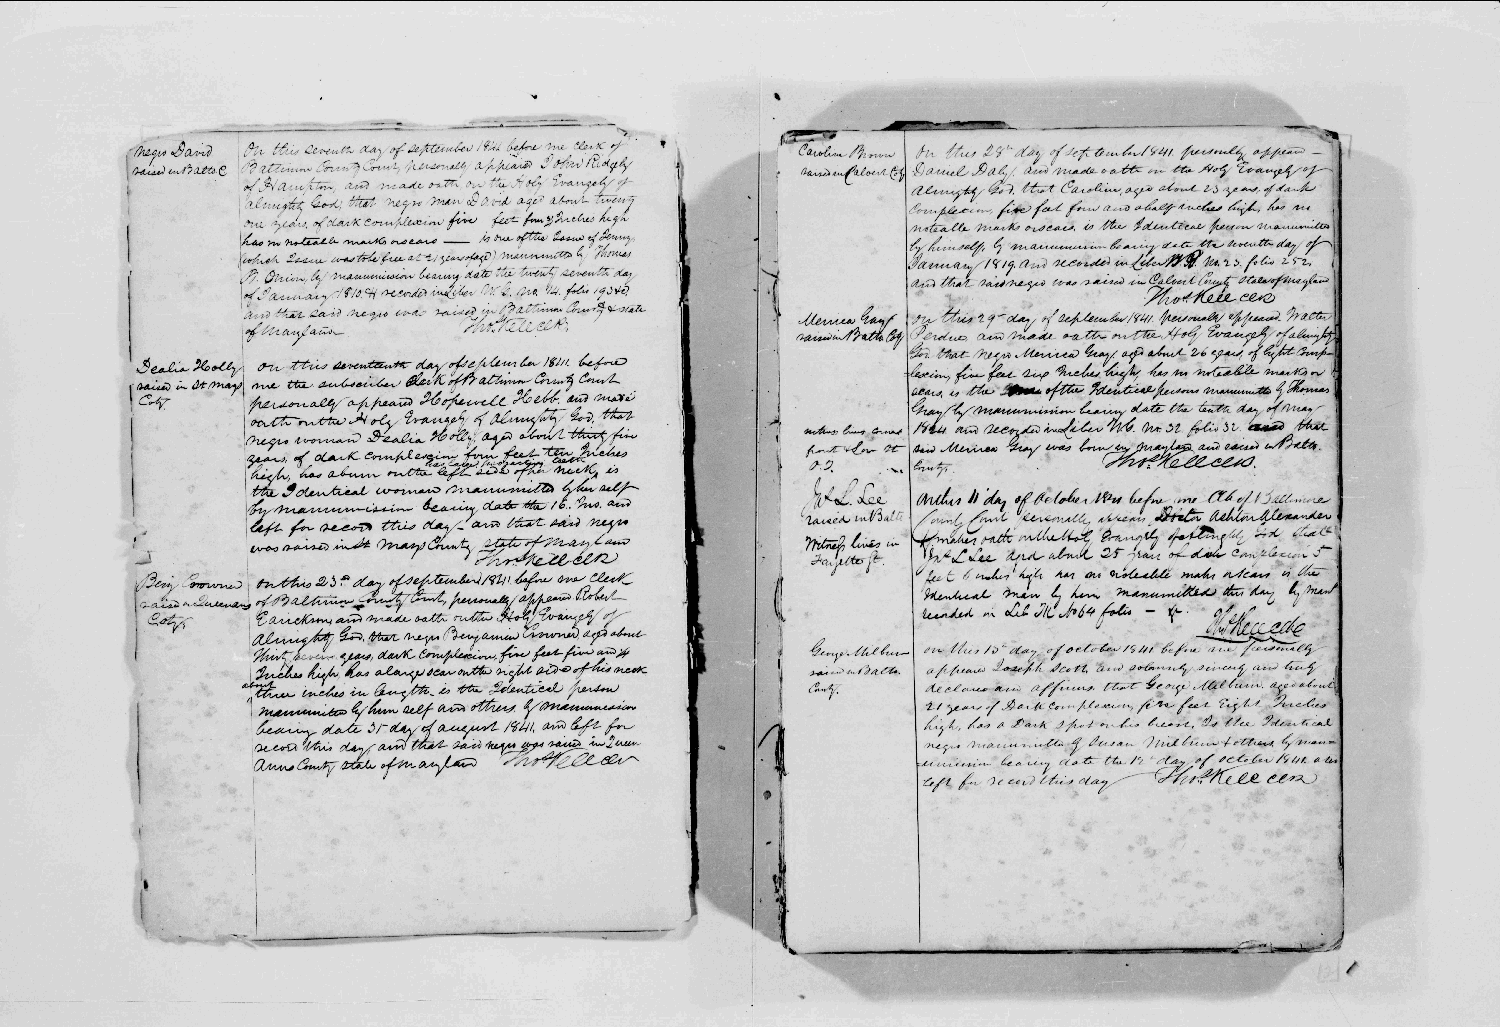 negro David
raised in Balto C
On this seventh day of september 1841 before me clerk of
Baltimore County Court, personally appeared John Ridgely
of Hampton, and made oath on the Holy Evangely of
Almighty God, that negro man David aged about twenty
one years, of dark complexion five feet four ½ Inches high
has no noteable marks or scars — is one of the Issue of
(which Issue was to be free at 21 years of age) manumitted by Thomas
by manumission bearing date the twenty seventh day
of January 1810 & recorded in Liber W.G. No. 14. folio
and that said negro was raised in Baltimore County & state
of Maryland. Thos Kell Clk.
Dealia Holly
raised in St marys
Coty.
On this seventeenth day of september 1841. before
me the subscriber Clerk of Baltimore County Court
personally appeared Hopewell Hebb, and made
oath on the Holy Evangely of Almighty God, that
negro woman Dealia Holly aged about thirty five
years, of dark complexion four feet ten Inches
high, has a burn on the left side of her neck, is
the Identical woman manumitted by her self
by manumission bearing date the 16. Ins. and
left for record this day - and that said negro
was raised in St Marys County state of Maryland
Thos Kell Clk
Benj Crowner
raised in Queen ans
Coty.
On this 23rd day of september 1841 before me clerk
of Baltimore County Court, personally appeared Robert
Earickson, and made oath on the Holy Evangely of
Almighty God, that negro Benjamin Crowner aged about
Thirt, seven years, dark complexion, five feet five and ¼
Inches high, has a large scar on the right side of his neck
about
three inches in length, is the Identical person
manumitted by him self and others, by manumission
bearing date 31st day of august 1841, and left for
record this day, and that said negro was raised in Queen
Anns County state of maryland Thos Kell Clk
Caroline Brown
raised in Calvert Coty
On this 28th day of september 1841. personly appear
Daniel Daly, and made oath on the Holy Evangely of
Almighty God, that Caroline, aged about 23 years, of dark
complexion, five feet four and a half inches high, has no
noteable marks or scars, is the Identical person manumitted
by himself, by manumission bearing date the seventh day of
January 1819. and recorded in Liber No. 23. folio 252.
and that said negro was raised in Calvert County state of Maryland
Thos Kell Clk
Merrica Gray
raised in Balto Coty
On this 29th day of september 1841. personaly appeared Walter
Perdue and made oath on the Holy Evangely of almighty
God that negro Merrica Gray, aged about 26 years, of light comp-
lexion, five feet six Inches high, has no noteable marks or
scars, is the of the Identical persons manumitted by Thomas
Gray by manumission bearing date the tenth day of may
and recorded in Liber W.G. No. 32 folio 32. and that
said Merrica Gray was born in maryland and raised in Balto.
County. Thos Kell Clk.
witness lives corner
& Lov St
O.T.
Jas L. Lee
raised in Balto
Witness lives in
Fayette St.
On this 11th day of October 1841 before me Clk of Baltimore
County Court, personally appears Doctor Ashton Alexander
& makes oath on the Holy Evangely of Almighty God, that
Jas L Lee aged about 25 years of dark complexion 5
feet 6 inches high has no noteable marks or scars is the
Identical man by him manumitted this day by man
recorded in Lib TK No 64 folio — &c.
Thos Kell Clk
George Milburn
raised in Balto.
Conty.
On this 13th day of october 1841 before me personally
appeared Joseph Scott, and solomnly, sincerly, and truly
declares and affirms that George Milburn, aged about
21 years of Dark complexion, five feet Eight Inches
high, has a Dark spot on his breast, Is the Identical
negro manumitted by Susan Milburn & others, by manu-
mission bearing date the 12th day of october 1841. and
left for record this day Thos Kell Clk